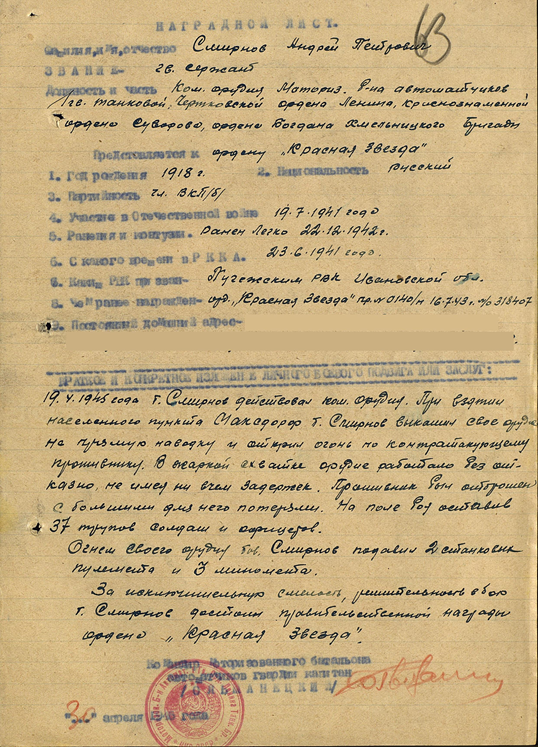 63
НАГРАДНОЙ ЛИСТ.
Фамилия, имя, отчество Смирнов Андрей Петрович
ЗВАНИЕ- гв. сержант
Должность и часть Ком. орудия Моториз. б-на автоматчиков
1 гв. танковой, Чертковской ордена Ленина, Краснознаменной
ордена Суворова, ордена Богдана Хмельницкого Бригады
Представляется к ордену „Красная Звезда"
1. Год рождения 1918 г. 2. Национальность русский
3. Партийность чл. ВКП/б/
4. Участие в Отечественной войне 19.7.1941 года
5. Ранения и контузии. Ранен легко 22.12.1942 г.
6. С какого времени в РККА. 23.6.1941 года.
6. Каким РВК призван- Пучежским РВК Ивановской обл.
8. Чем ранее награжден- орд. „Красная Звезда" пр. № 0140/н 16.7.43 г. о/б 318407
9. Постоянный домашний адрес-
КРАТКОЕ И КОНКРЕТНОЕ ИЗЛОЖЕНИЕ ЛИЧНОГО БОЕВОГО ПОДВИГА ИЛИ ЗАСЛУГ:
19.4.1945 года т. Смирнов действовал ком. орудия. При взятии
населенного пункта т. Смирнов выкатил свое орудие
на прямую наводку и открыл огонь по контратакующему
противнику. В жаркой схватке орудие работало безот-
казно, не имея ни в чем задержек. Противник был отброшен
с большими для него потерями. На поле боя оставив
37 трупов солдат и офицеров.
Огнем своего орудия тов. Смирнов подавил 2 станковых
пулемета и 3 миномета.
За исключительную смелость, решительность в бою
т. Смирнов достоин правительственной награды
ордена „Красная Звезда".
Командир моторизованного батальона
автоматчиков гвардии капитан
/ИВАНЕЦКИЙ/
"30" апреля 1945 года